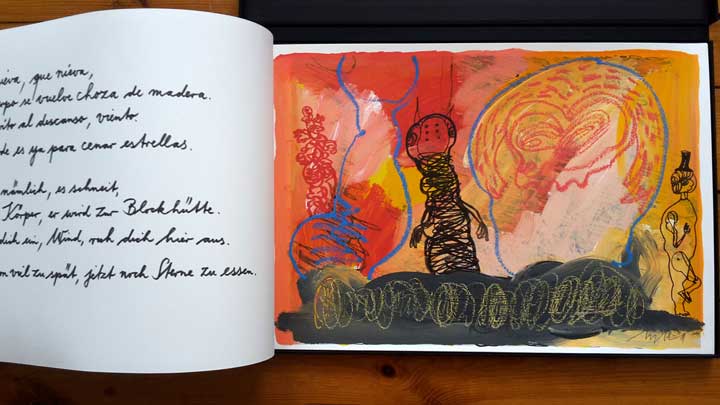 nieva, que nieva,
se vuelve choza de madera.
al descanso, viento.
es ya para cenar estrellas.
nämlich, es schneit,
Körper, er wird zur Blockhütte.
dich ein, Wind, ruh dich hier aus.
viel zu spät, jetzt noch Sterne zu essen.